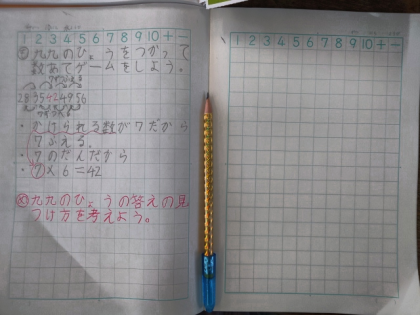 1 2 3 4 5 6 7 8 9 10 + −
九九のひょうをつかって
数あてゲームをしよう。
28 35 42 49 56
・かけられる数が7だから
7ふえる。
・7のだんだから
・7×6=42
九九のひょうの答えの見
つけ方を考えよう。
1 2 3 4 5 6 7 8 9 10 + −